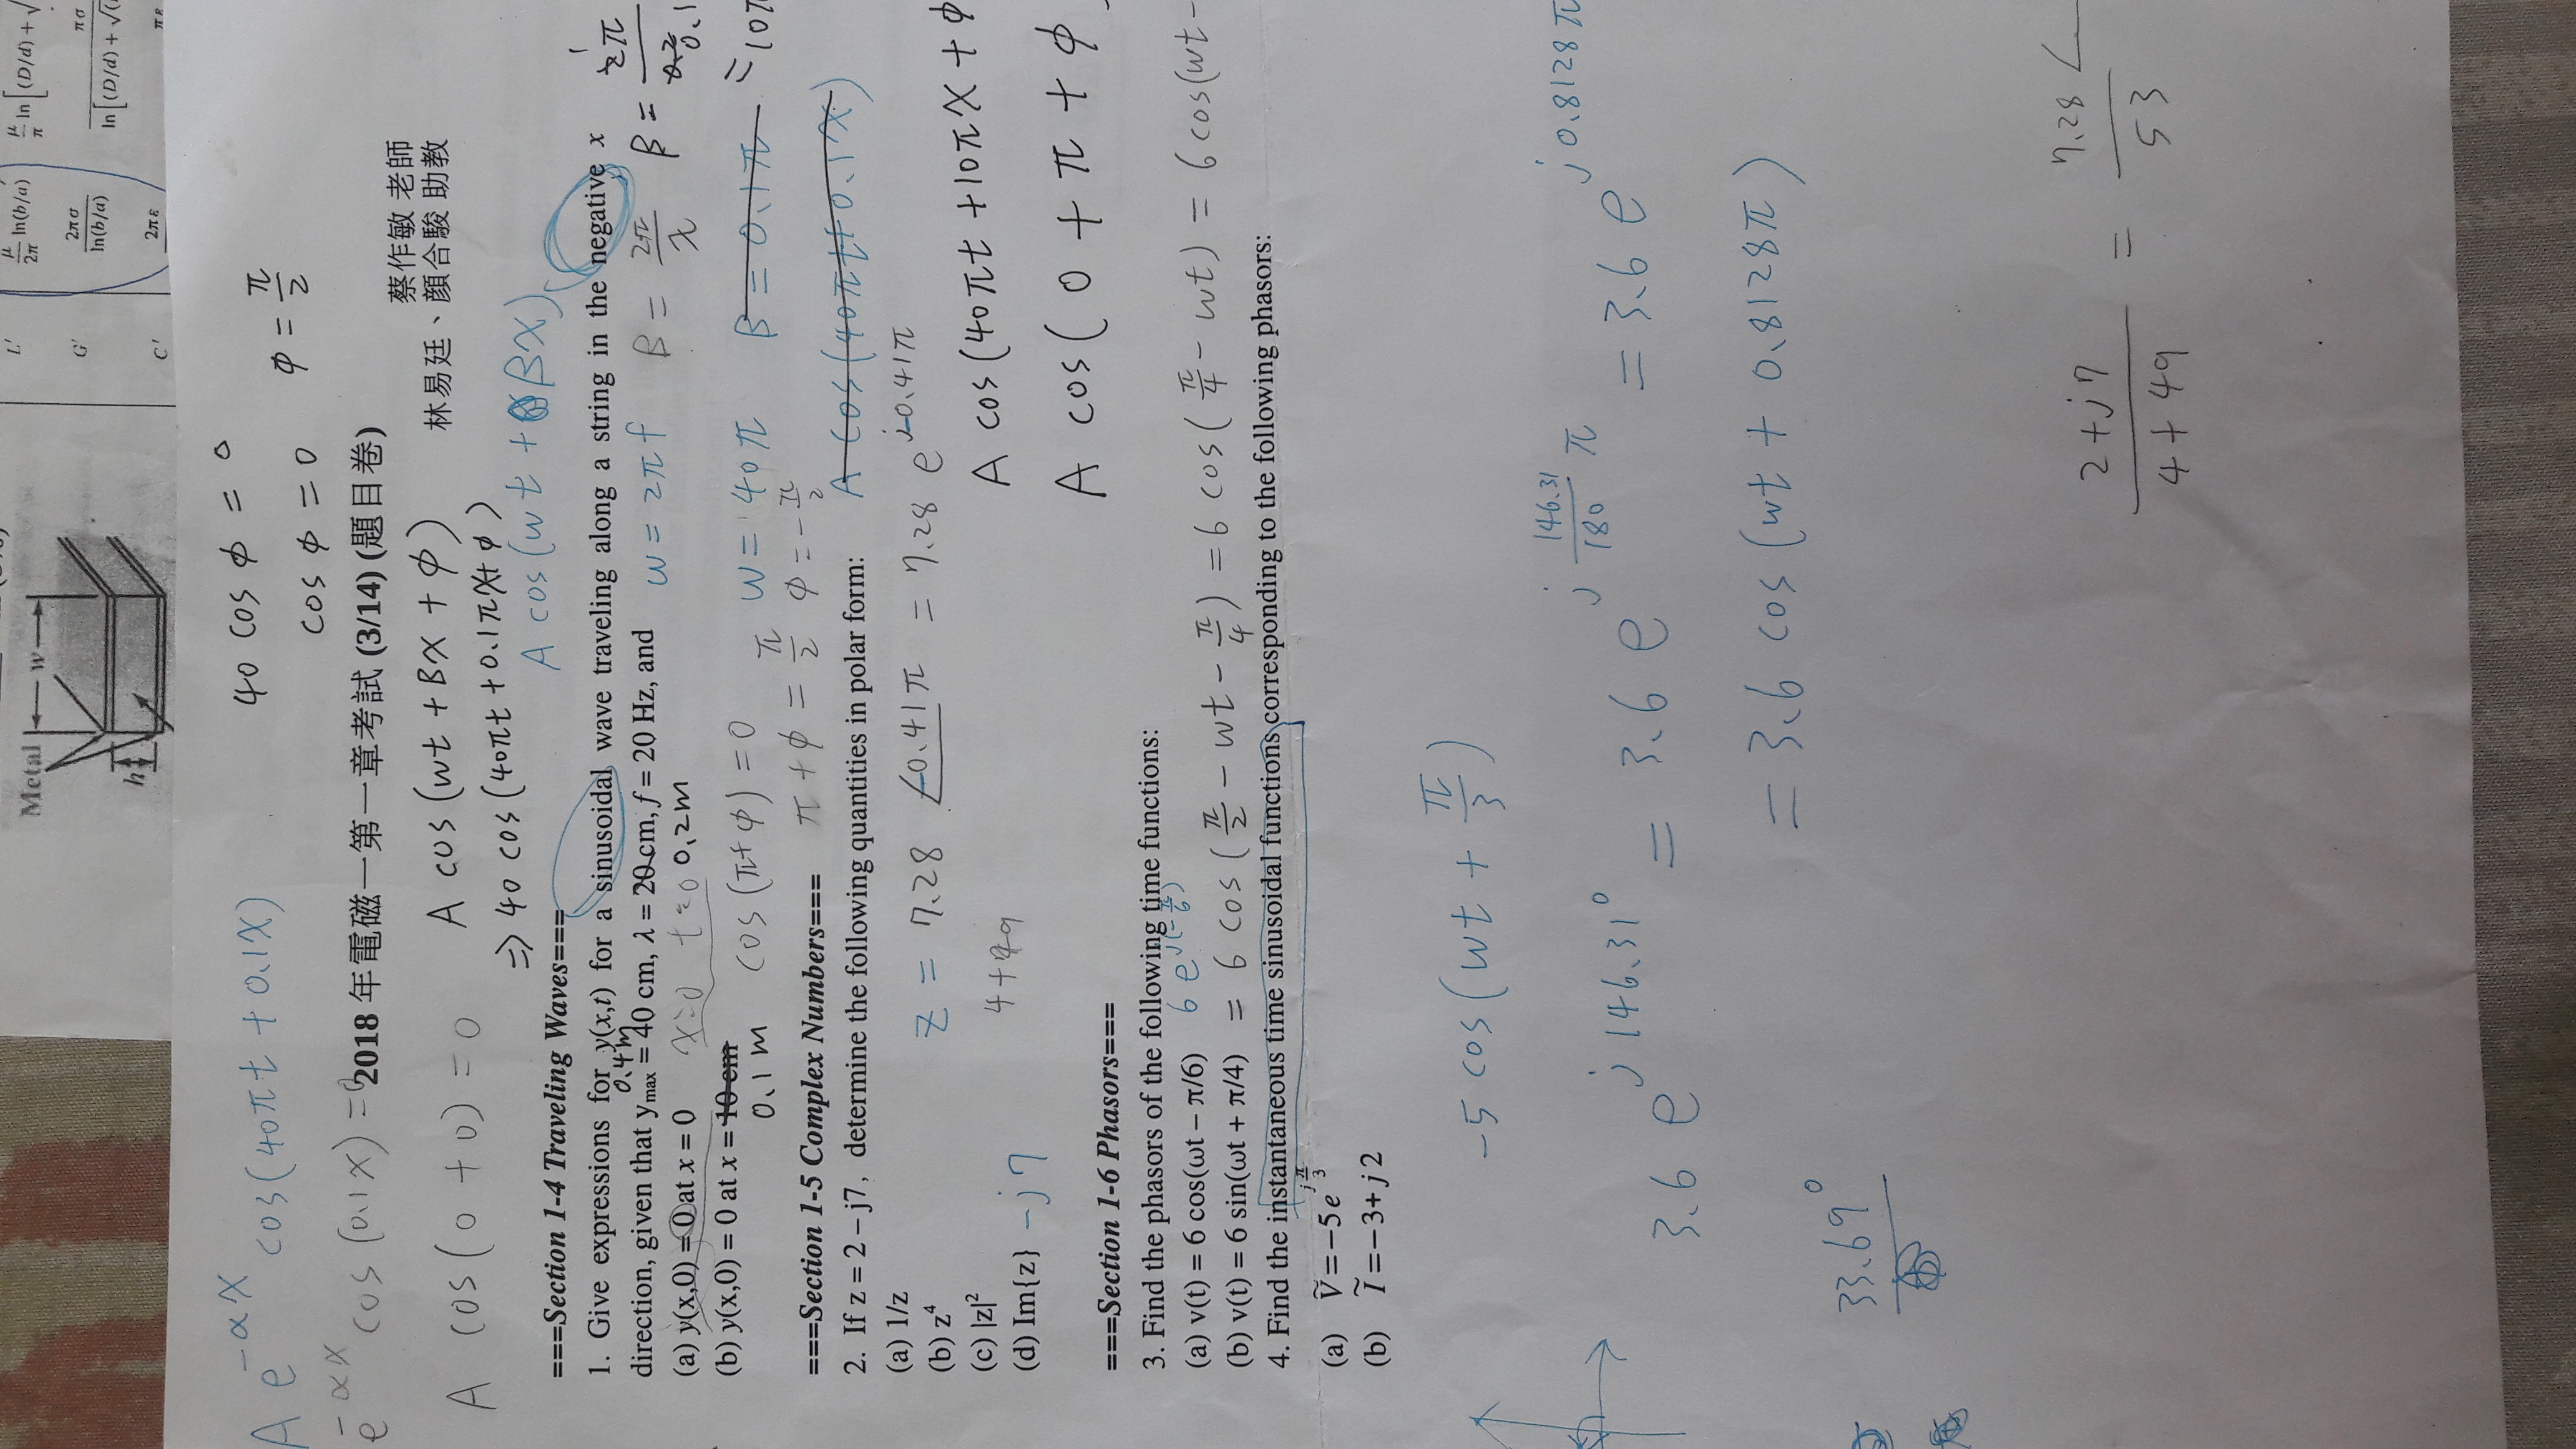 Metal
w
h
L'
μ/2π ln(b/a)
μ/π ln[(D/d) + √
G'
2πσ/ln(b/a)
πσ/ln[(D/d) + √(
C'
2πε
πε
A e^{-αx} cos(40πt + 0.1x)
40 cos φ = 0
cos φ = 0
φ = π/2
e^{-αx} cos(0.1x) = 0
2018 年電磁一第一章考試 (3/14) (題目卷)
蔡作敏 老師
林易廷、顏合駿 助教
A cos(0 + 0) = 0
A cos(wt + βx + φ)
⇒ 40 cos(40πt + 0.1πx + φ)
A cos(wt + βx)
===Section 1-4 Traveling Waves===
1. Give expressions for y(x,t) for a sinusoidal wave traveling along a string in the negative x
0.4m
direction, given that ymax = 40 cm, λ = 20 cm, f = 20 Hz, and
w = 2πf
β = 2π/λ
β = 2π/0.2
1
0.1
= 10π
(a) y(x,0) = 0 at x = 0
x=0 t=0
0.2m
(b) y(x,0) = 0 at x = 10 cm
0.1m
cos(π+φ) = 0
w = 40π
β = 0.1π
π + φ = π/2
φ = -π/2
===Section 1-5 Complex Numbers===
A cos(40πt + 0.1x)
2. If z = 2 – j7, determine the following quantities in polar form:
(a) 1/z
(b) z⁴
z = 7.28 ∠-0.41π = 7.28 e^{j-0.41π}
(c) |z|²
4 + 49
A cos(40πt + 10πx + φ
(d) Im{z}
-j7
A cos(0 + π + φ
===Section 1-6 Phasors===
3. Find the phasors of the following time functions:
(a) v(t) = 6 cos(ωt – π/6)
6 e^{j(-π/6)}
(b) v(t) = 6 sin(ωt + π/4)
= 6 cos(π/2 - wt - π/4) = 6 cos(π/4 - wt) = 6 cos(wt -
4. Find the instantaneous time sinusoidal functions corresponding to the following phasors:
(a) Ṽ = −5e^{jπ/3}
(b) Ĩ = −3 + j2
-5 cos(wt + π/3)
3.6 e^{j146.31°} = 3.6 e^{j(146.31/180)π} = 3.6 e^{j0.8128π}
= 3.6 cos(wt + 0.8128π)
33.69°
(2+j7)/(4+49) = 7.28∠/53